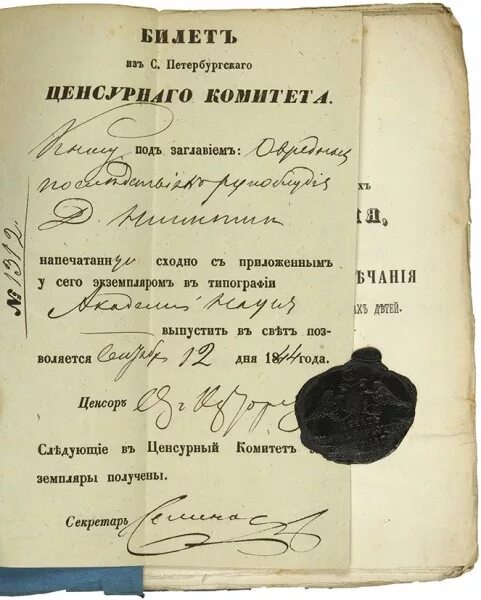 БИЛЕТЪ
изъ С. Петербургскаго
ЦЕНСУРНАГО КОМИТЕТА.
Книгу подъ заглавіемъ: О вредныхъ
послѣдствіяхъ рукоблудія
Д. Никитин
напечатанную сходно съ приложеннымъ
у сего экземпляромъ въ типографіи
Академіи Наукъ
выпустить въ свѣтъ поз-
воляется Сентября 12 дня 1844 года.
Ценсоръ
Слѣдующіе въ Ценсурный Комитетъ
земпляры получены.
Секретарь
№ 1312.
ХЪ
ІЯ,
ѢЧАНІЯ
АХЪ ДѢТЕЙ.